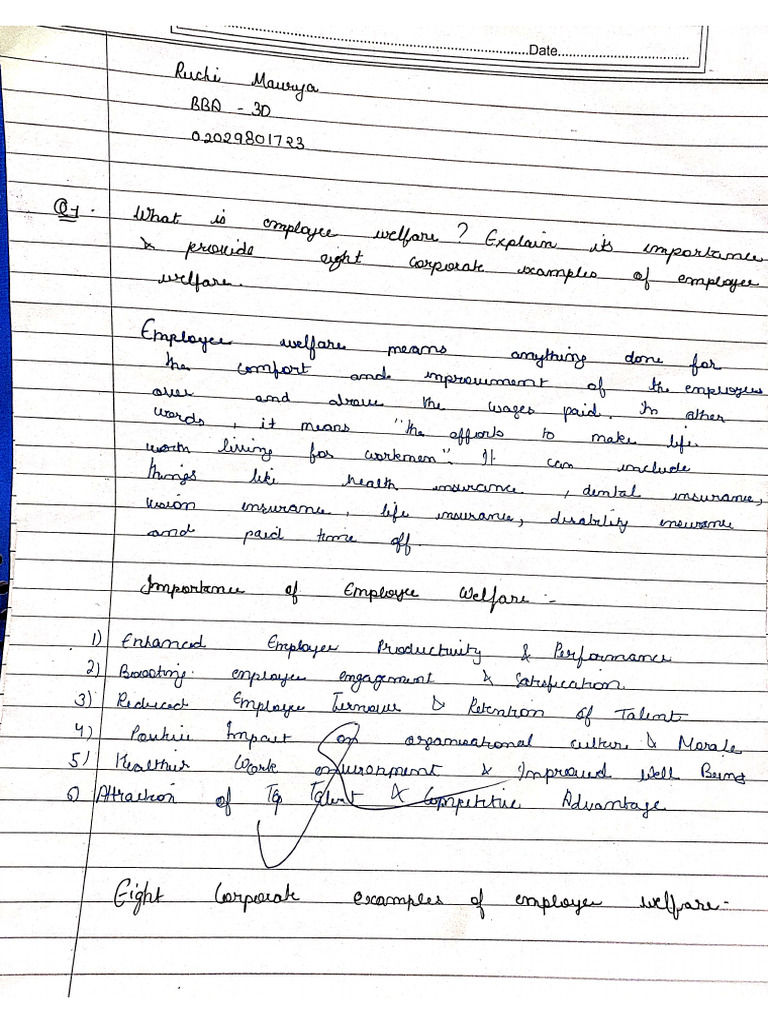 Date
Ruchi Maurya
BBA - 3D
02029801723
Q1. What is employee welfare? Explain its importance
& provide eight corporate examples of employee
welfare.
Employee welfare means anything done for
the comfort and improvement of the employees
over and above the wages paid. In other
words, it means "the efforts to make life
worth living for workmen". It can include
things like health insurance, dental insurance,
vision insurance, life insurance, disability insurance
and paid time off.
Importance of Employee Welfare :-
1) Enhanced Employee Productivity & Performance
2) Boosting employee engagement & Satisfication
3) Reduced Employee Turnover & Retention of Talent
4) Positive Impact on organisational culture & Morale
5) Healthier Work environment & Improved Well Being
6) Attraction of Top Talent & Competitive Advantage
Eight Corporate examples of employee welfare-